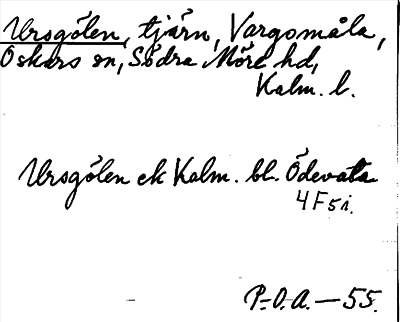 Ursgölen, tjärn, Vargomåla,
Oskars sn, Södra Möre hd,
Kalm. l.
Ursgölen ek Kalm. bl. Ödevata
4F5i.
P-O.A. — 55.